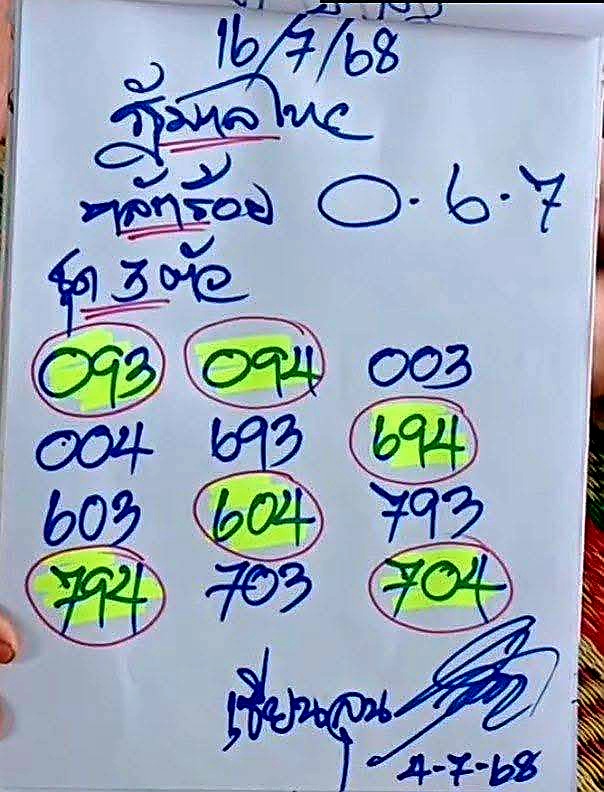 16/7/68
รัฐบาลไทย
หลักร้อย 0.6.7
ชุด 3 ตัว
093 094 003
004 693 694
603 604 793
794 703 704
เซียนลุน
4-7-68